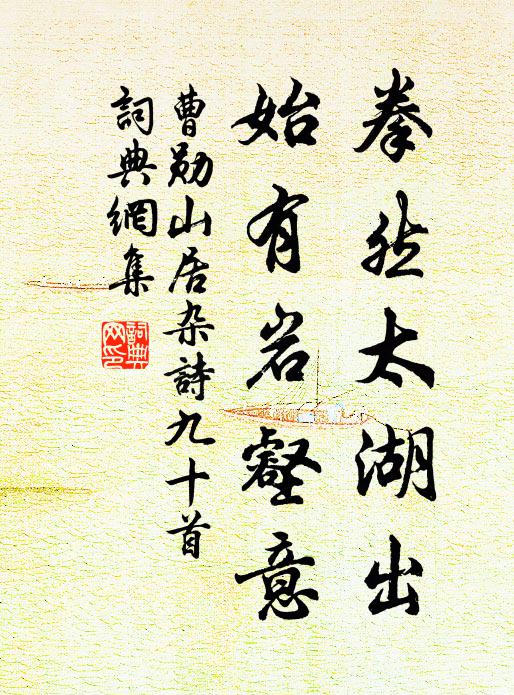 拳然太湖出
始有岩壑意
曹勛山居杂詩九十首
詞典網集
詞典
网印